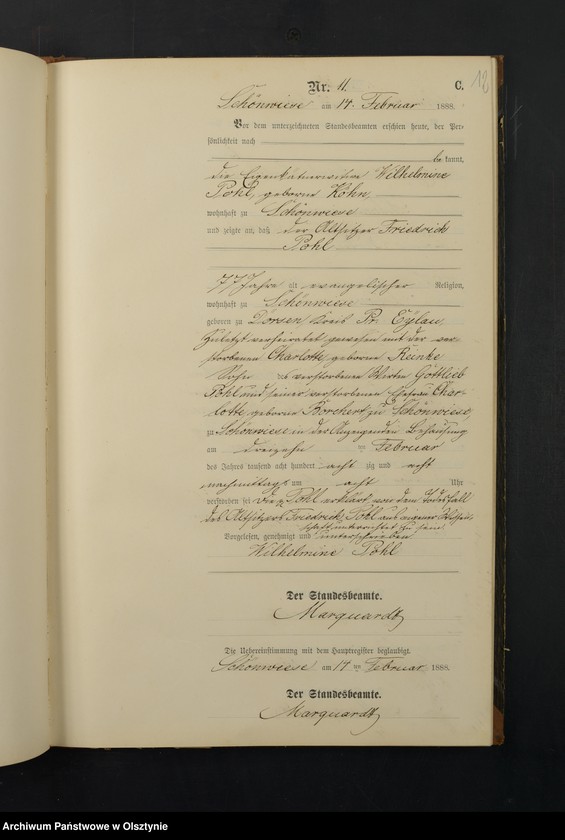 12
Nr. 11. C.
Schönwiese am 14. Februar 1888.
Vor dem unterzeichneten Standesbeamten erschien heute, der Per-
sönlichkeit nach
be kannt,
die Eigenkäthnerwittwe Wilhelmine
Pohl, geborne Köhn,
wohnhaft zu Schönwiese
und zeigte an, daß der Altsitzer Friedrich
Pohl
77 Jahre alt evangelischer Religion,
wohnhaft zu Schönwiese
geboren zu Dörsen, Kreis Pr. Eylau,
zuletzt verheiratet gewesen mit der ver-
storbenen Charlotte, geborne Reinke
Sohn des verstorbenen Wirten Gottlieb
Pohl und seiner verstorbenen Ehefrau Char-
lotte, geborne Borchert zu Schönwiese,
zu Schönwiese in der Anzeigenden Behausung
am dreizehn ten Februar
des Jahres tausend acht hundert acht zig und acht
nachmittags um acht Uhr
verstorben sei Die Pohl erklärt von dem Todesfall
des Altsitzers Friedrich Pohl aus eigener Wissen-
schaft unterrichtet zu sein
Vorgelesen, genehmigt und unterschrieben
Wilhelmine Pohl
Der Standesbeamte.
Marquardt
Die Uebereinstimmung mit dem Hauptregister beglaubigt.
Schönwiese am 14 ten Februar 1888.
Der Standesbeamte.
Marquardt
Archiwum Państwowe w Olsztynie